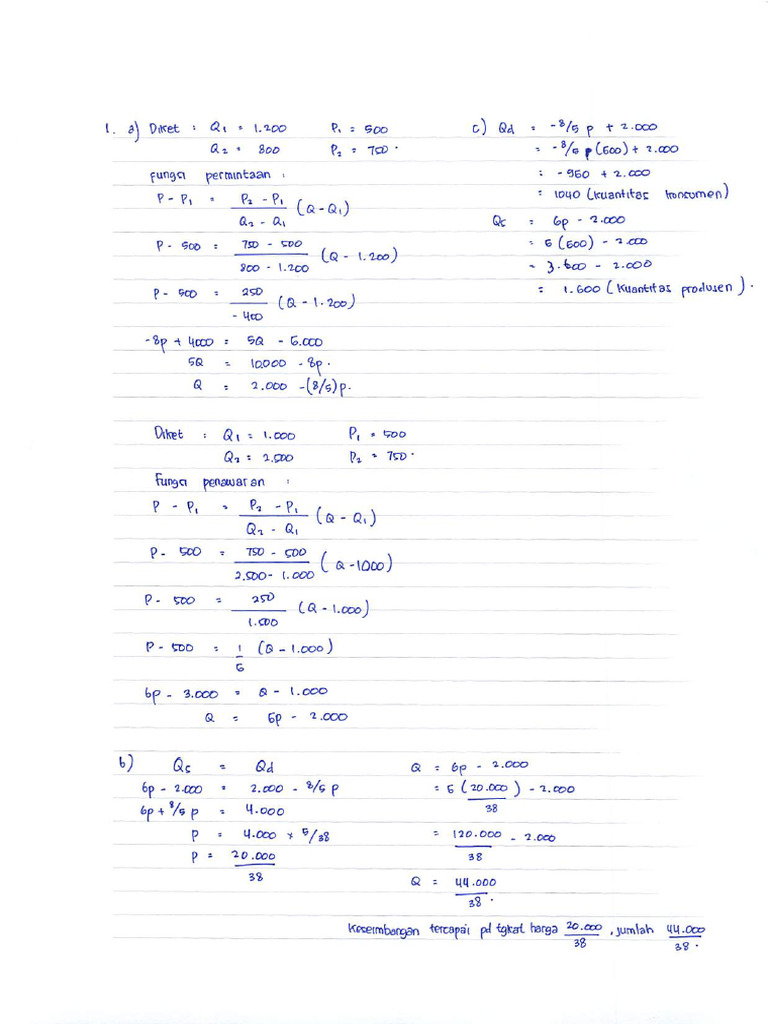 1. a) Diket : Q1 = 1.200 P1 = 500
Q2 = 800 P2 = 750.
Fungsi permintaan :
P - P1 = P2 - P1 / Q2 - Q1 (Q - Q1)
P - 500 = 750 - 500 / 800 - 1.200 (Q - 1.200)
P - 500 = 250 / -400 (Q - 1.200)
-8p + 4000 = 5Q - 6.000
5Q = 10.000 - 8p.
Q = 2.000 - (8/5)p.
Diket : Q1 = 1.000 P1 = 500
Q2 = 2.500 P2 = 750.
Fungsi penawaran :
P - P1 = P2 - P1 / Q2 - Q1 (Q - Q1)
P - 500 = 750 - 500 / 2.500 - 1.000 (Q - 1000)
P - 500 = 250 / 1.500 (Q - 1.000)
P - 500 = 1 / 6 (Q - 1.000)
6p - 3.000 = Q - 1.000
Q = 6p - 2.000
b) Qs = Qd
6p - 2.000 = 2.000 - 8/5 p
6p + 8/5 p = 4.000
p = 4.000 x 5/38
p = 20.000 / 38
Q = 6p - 2.000
= 6 (20.000 / 38) - 2.000
= 120.000 / 38 - 2.000
Q = 44.000 / 38.
Keseimbangan tercapai pd tgkat harga 20.000 / 38, jumlah 44.000 / 38.
c) Qd = -8/5 p + 2.000
= -8/5 p (600) + 2.000
= -960 + 2.000
= 1040 (kuantitas konsumen)
Qs = 6p - 2.000
= 6 (600) - 2.000
= 3.600 - 2.000
= 1.600 (kuantitas produsen).